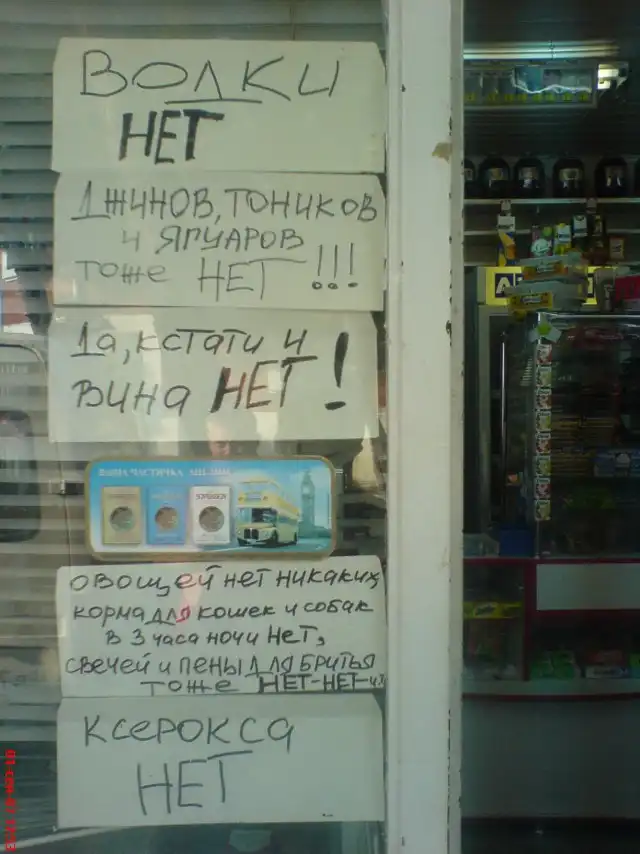 ВОЛКИ
НЕТ
ДЖИНОВ, ТОНИКОВ
И ЯГУАРОВ
тоже НЕТ !!!
Да, кстати и
вина НЕТ!
ВАША ЧАСТИЧКА АНГЛИИ
ОВОЩЕЙ НЕТ НИКАКИХ
КОРМА ДЛЯ КОШЕК И СОБАК
В 3 ЧАСА НОЧИ НЕТ,
СВЕЧЕЙ И ПЕНЫ ДЛЯ БРИТЬЯ
ТОЖЕ НЕТ-НЕТ-И
КСЕРОКСА
НЕТ